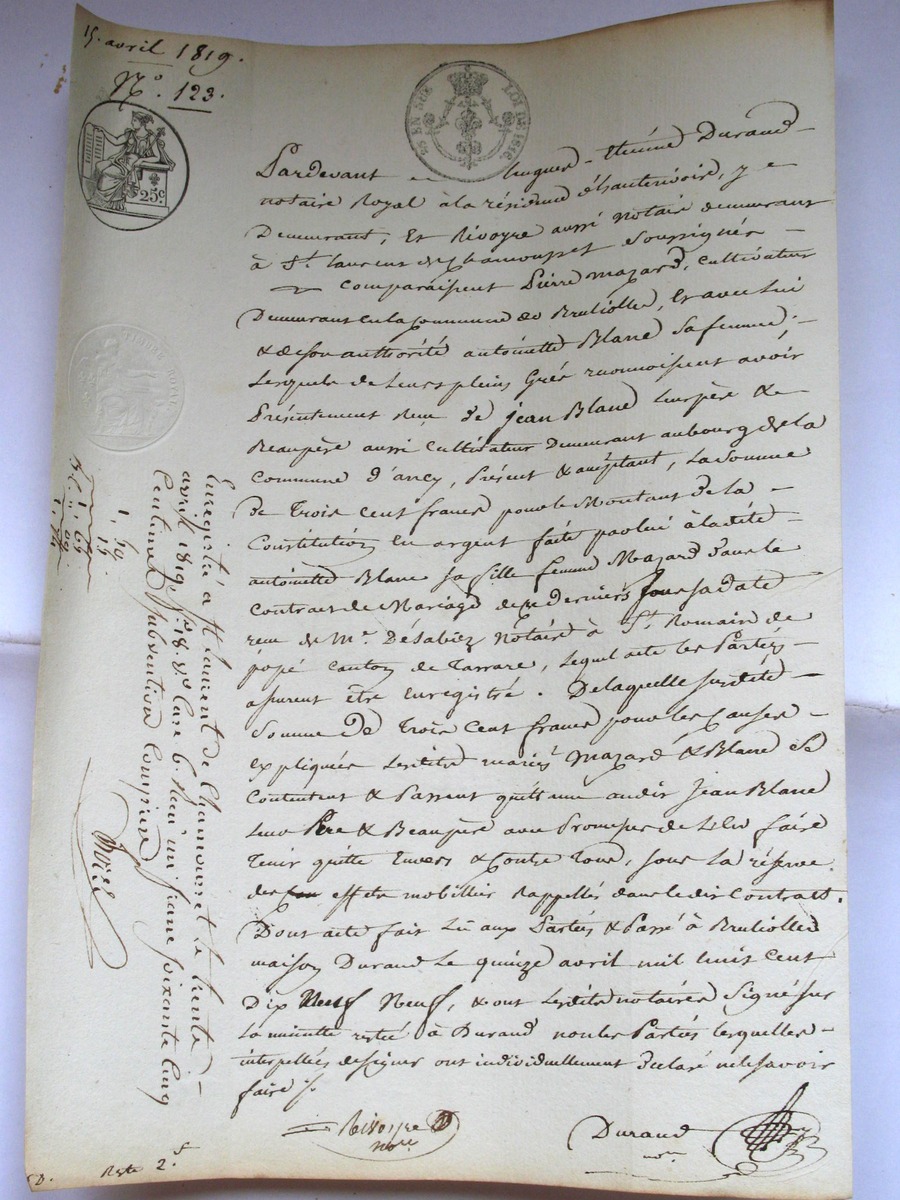 15. avril 1819.
N.° 123.
25c.
EN SUS LOI DE 1816
Pardevant Etiénne Durand
notaire Royal à la résidence d'hauterivoire, y
Demeurant, Et Rivoyre aussi Notaire demeurant
à St. Laurent de Chamousset Soussignés
Comparaissent Pierre Mazard, Cultivateur
Demeurant en la Commune de Brulliolles, Et avec Lui
& de son authorité antoinette Blanc Sa femme;
Lesquels de Leurs pleins Grés reconnoissent avoir
Présentement Reçu De jean Blanc leur père &
Beaupère aussi Cultivateur Demeurant au bourg de La
Commune d'ancy, Présent & acceptant, La Somme
De Trois Cent francs pour le Montant De la
Constitution En argent faite par lui à la dite
antoinette Blanc sa fille femme Mazard Dans le
Contrat de Mariage de ces derniers Sous sa date
reçu de Me. Désabiez Notaire à St. Romain de
popé Canton de Tarrare, Lequel acte les Parties
assurent être Enregistré. De laquelle susdite
Somme De Trois Cent francs pour les Causes
Expliquées Lesdits mariés Mazard & Blanc Se
Contentent & Passent quittance audit Jean Blanc
Leur Père & Beaupère avec Promesse de Le lui faire
Tenir quitte Envers & Contre Tous, sous La réserve
des effets mobilliers Rappellés dans le dit Contract.
Dont acte fait Lu aux Parties & Passé à Brulliolles
maison Durand Le quinze avril mil huit Cent
Dix Neuf, & ont Lesdits notaires Signé sur
La minutte restée à Durand non les Parties lesquelles
interpellées de signer ont individuellement Déclaré ne le savoir
faire
Rivoyre
nore
Durand
nore
Enregistré à St Laurent de Chamousset le trente
avril 1819 f° 18 v° Case 6. Reçu un franc soixante cinq
Centimes Subvention Comprise
Morel
1, 50
15
1, 65
09
1, 74
Reste 2.f
D.